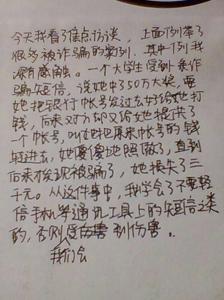 今天我看了焦点访谈，上面列举了
很多被诈骗的案例，其中一例我
深有感触。一个大学生受到来诈
骗短信，说她中了50万大奖，要
她把银行帐号发过去好给她打
钱，后来对方却又给她提供了
一个帐号，叫她把原来帐号的钱
转进去，她傻傻地照做了，直到
后来才发现被骗了，她损失了三
千元。从这件事中，我学会了不要轻
信手机等通讯工具上的短信之类
的，否则 会伤害 到伤害。
我们会